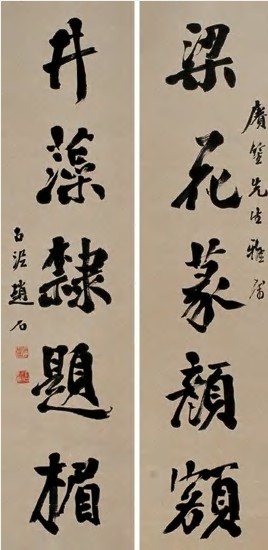 賡先生雅屬
梁花篆顏額
井藻隸題楣
古泥趙石